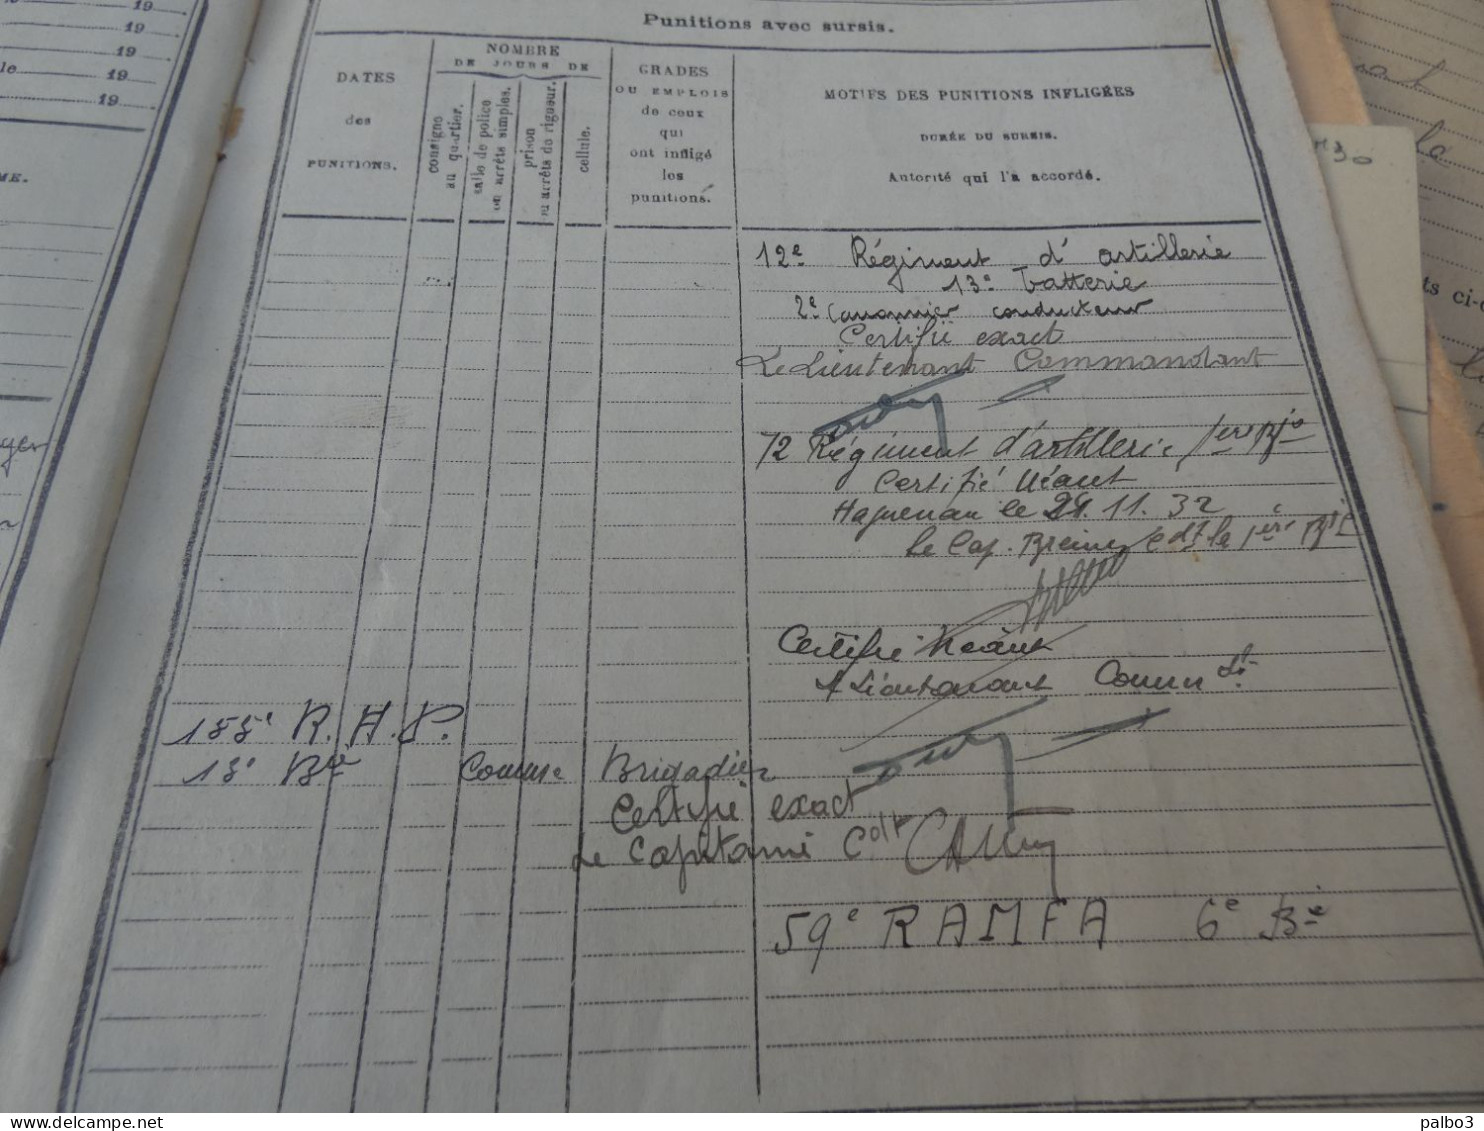 19
19
19
le 19
19
ME.
Punitions avec sursis.
DATES
des
PUNITIONS.
NOMBRE
DE JOURS DE
consigne
au quartier.
salle de police
ou arrêts simples.
prison
ou arrêts de rigueur.
cellule.
GRADES
OU EMPLOIS
de ceux
qui
ont infligé
les
punitions.
MOTIFS DES PUNITIONS INFLIGÉES
DURÉE DU SURSIS.
Autorité qui l'a accordé.
12e Régiment d'artillerie
13e batterie
2e Canonnier conducteur
Certifié exact
Le Lieutenant Commandant
72 Régiment d'artillerie 1ere Bie
Certifié Néant
Haguenau le 24.11.32
le Cap. Cdt la 1ère Bie
Certifié Néant
Le Lieutenant Commdt
155e R.A.P.
13e Bie comme Brigadier
Certifié exact
Le Capitaine Cdt
59e RAMFA 6e Bie
ts ci-d
palbo3